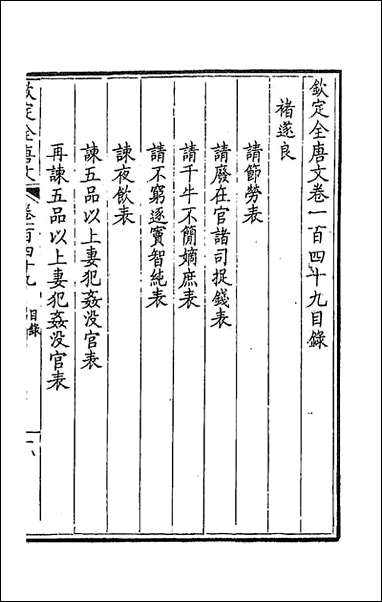 欽定全唐文卷一百四十九目錄
褚遂良
請節勞表
請廢在官諸司捉錢表
請千牛不簡嫡庶表
請不窮逐竇智純表
諫夜飲表
諫五品以上妻犯姦没官表
再諫五品以上妻犯姦没官表
欽定全唐文 卷一百四十九 目錄 一